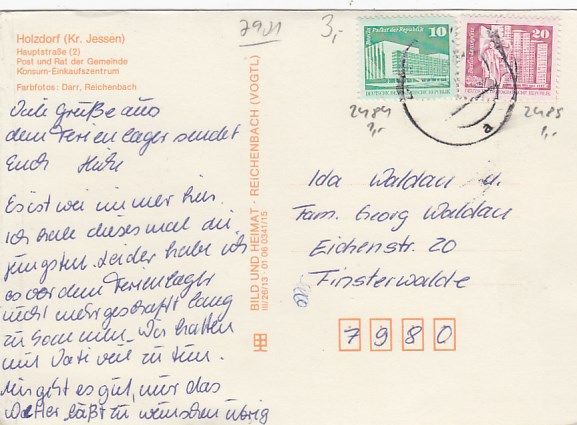 7901
3,-
Holzdorf (Kr. Jessen)
Hauptstraße (2)
Post und Rat der Gemeinde
Konsum-Einkaufszentrum
Farbfotos: Darr, Reichenbach
Viele Grüße aus
dem Ferienlager sendet
Euch
Es ist wie immer hier.
Ich habe dieses mal die
jüngsten. Leider habe ich
es vor dem Ferienlager
nicht mehr geschafft lang
zu kommen. Wir hatten
mit Vati viel zu tun.
Mir geht es gut, nur das
Wetter läßt zu wünschen übrig
BILD UND HEIMAT · REICHENBACH (VOGTL)
III/26/13 · 01 06 0341/15
Palast der Republik
10
DEUTSCHE DEMOKRATISCHE REPUBLIK
20
DEUTSCHE DEMOKRATISCHE REPUBLIK
a
2484
1,-
2485
1,-
Ida Waldau u.
Fam. Georg Waldau
Eichenstr. 20
Finsterwalde
7980